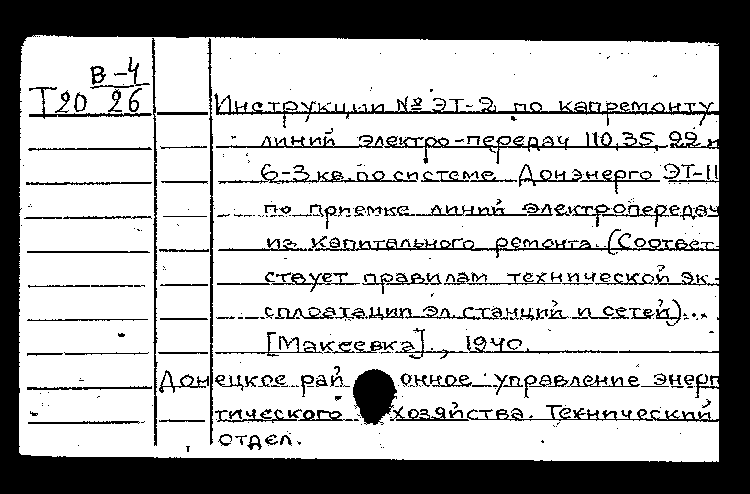 В-4
Т20 26
Инструкции № ЭТ-2 по капремонту
линий электро-передач 110, 35, 22 и
6-3 кв. по системе Донэнерго ЭТ-11
по приемке линий электропередач
из капитального ремонта. (Соответ-
ствует правилам технической эк-
сплоатации эл. станций и сетей)...
[Макеевка]., 1940.
Донецкое рай онное управление энерг
тического хозяйства. Технический
отдел.